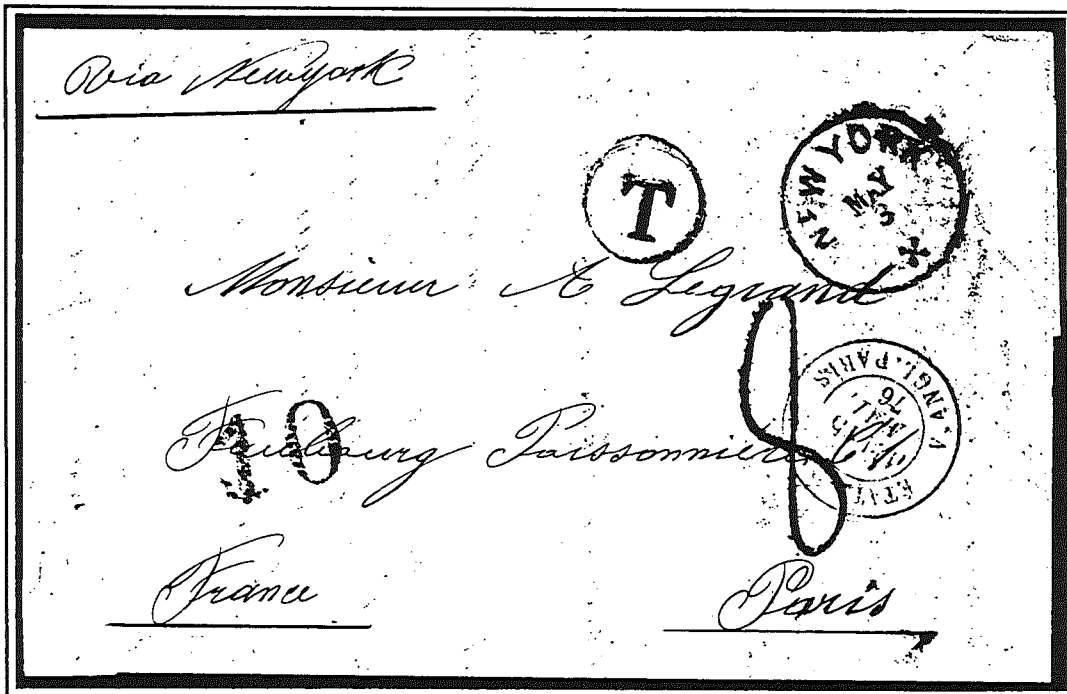 Via Newyork
T
NEW YORK
MAY
3
Monsieur A Legrand
10
8
ANGL. PARIS
5
MAI
76
Faubourg Poissonniere
France
Paris